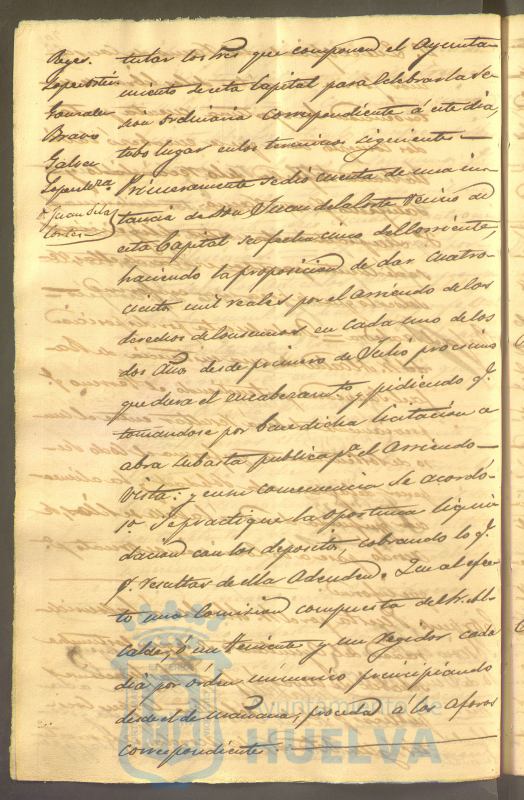 Reyes.
Lopez Ortiz
Gonzalez
Bravo
Galvez
Lopez
Dn. Juan de la
Corte
tular los tres que componen el Ayunta-
miento de esta Capital para celebrar la se-
sion ordinaria correspondiente á este dia,
tubo lugar en los terminos siguiente =
Primeramente se dió cuenta de una ins-
tancia de Don Juan de la Corte Vecino de
esta Capital su fecha cinco del corriente,
haciendo la proposicion de dar cuatro-
cientos mil reales por el arriendo de los
derechos de consumos en cada uno de los
dos Años desde primero de Julio procsimo
que dura el encabezamto. y pidiendo q.
tomandose por base dicha licitacion se
abra subasta publica pa. el arriendo=
Vista: y en su consecuencia se acordó=
1o. Se practique la oportuna liqui-
dacion con los depositos, cobrando lo q.
p. resultas de ella adeuden. Que al efec-
to una Comision compuesta del Sr. Al-
calde, ó un Teniente y un Regidor cada
dia por órden numerico, principiando
desde el de mañana, proceda a los aforos
correspondiente.
Ayuntamiento de
HUELVA